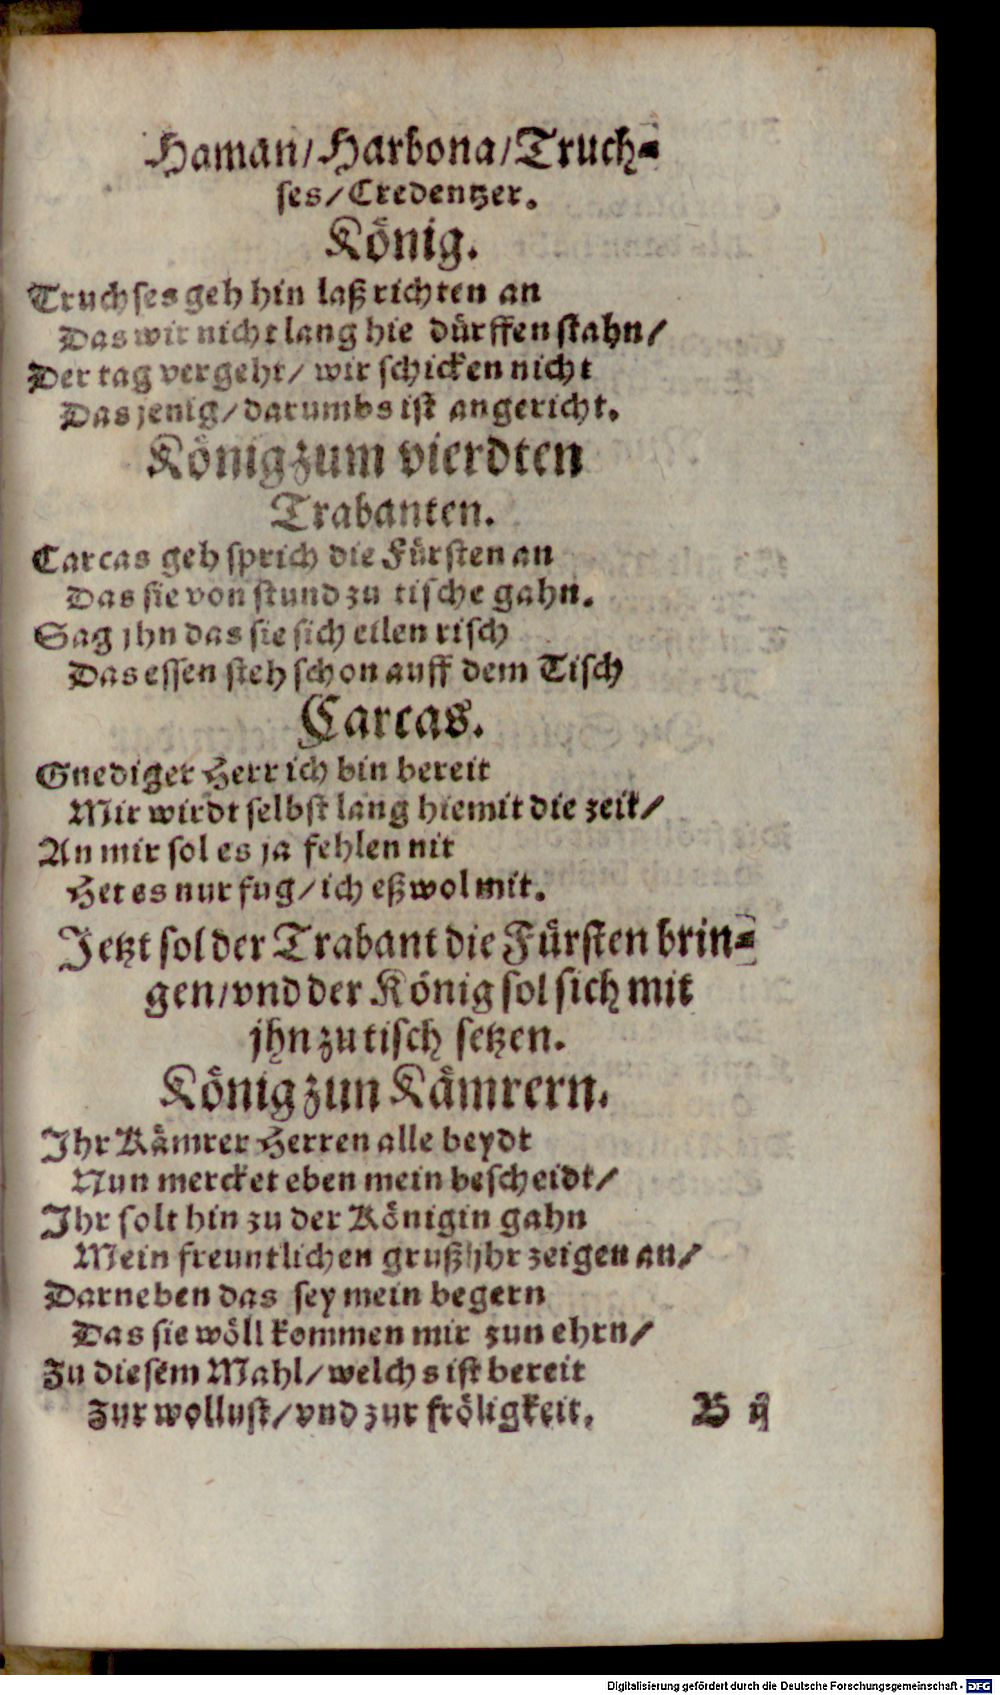 Haman/Harbona/Truch⸗
ses/Credentzer.
König.
Truchses geh hin laß richten an
Das wir nicht lang hie dürffen stahn/
Der tag vergeht/ wir schicken nicht
Das jenig/darumbs ist angericht.
König zum vierdten
Trabanten.
Carcas geh sprich die Fürsten an
Das sie von stund zu tische gahn.
Sag jhn das sie sich eilen risch
Das essen steh schon auff dem Tisch
Carcas.
Gnediger Herr ich bin bereit
Mir wirdt selbst lang hiemit die zeit/
An mir sol es ja fehlen nit
Het es nur fug/ich eß wol mit.
Jetzt sol der Trabant die Fürsten brin⸗
gen/vnd der König sol sich mit
jhn zu tisch setzen.
König zun Kämrern.
Ihr Kämrer Herren alle beydt
Nun mercket eben mein bescheidt/
Ihr solt hin zu der Königin gahn
Mein freuntlichen gruß jhr zeigen an/
Darneben das sey mein begern
Das sie wöll kommen mir zun ehrn/
Zu diesem Mahl/welchs ist bereit
Zur wollust/vnd zur fröligkeit.
B ij
Digitalisierung gefördert durch die Deutsche Forschungsgemeinschaft - DFG